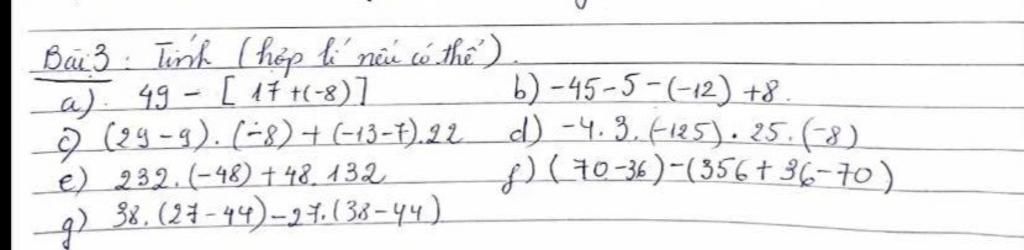 Bài 3 : Tính (hợp lí nếu có thể).
a) 49 - [17 + (-8)] b) -45 - 5 - (-12) + 8.
c) (29 - 9) . (-8) + (-13 - 7) . 22 d) -4 . 3 . (-125) . 25 . (-8)
e) 232 . (-48) + 48 . 132 f) (70 - 36) - (356 + 36 - 70)
g) 38 . (27 - 44) - 27 . (38 - 44)